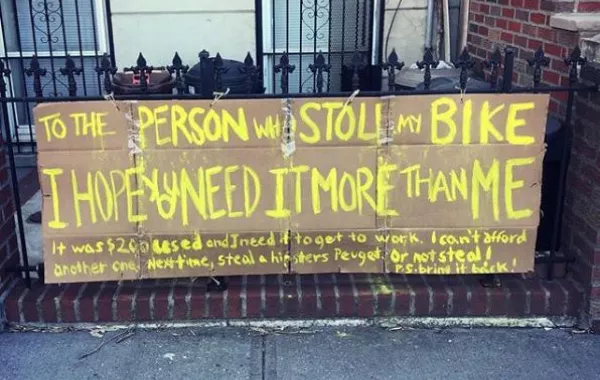 TO THE PERSON WHO STOLE MY BIKE
I HOPE YOU NEED IT MORE THAN ME
It was $200 used and I need it to get to work. I can't afford
another one. Next time, steal a hipsters Peuget. Or not steal!
P.S. bring it back!